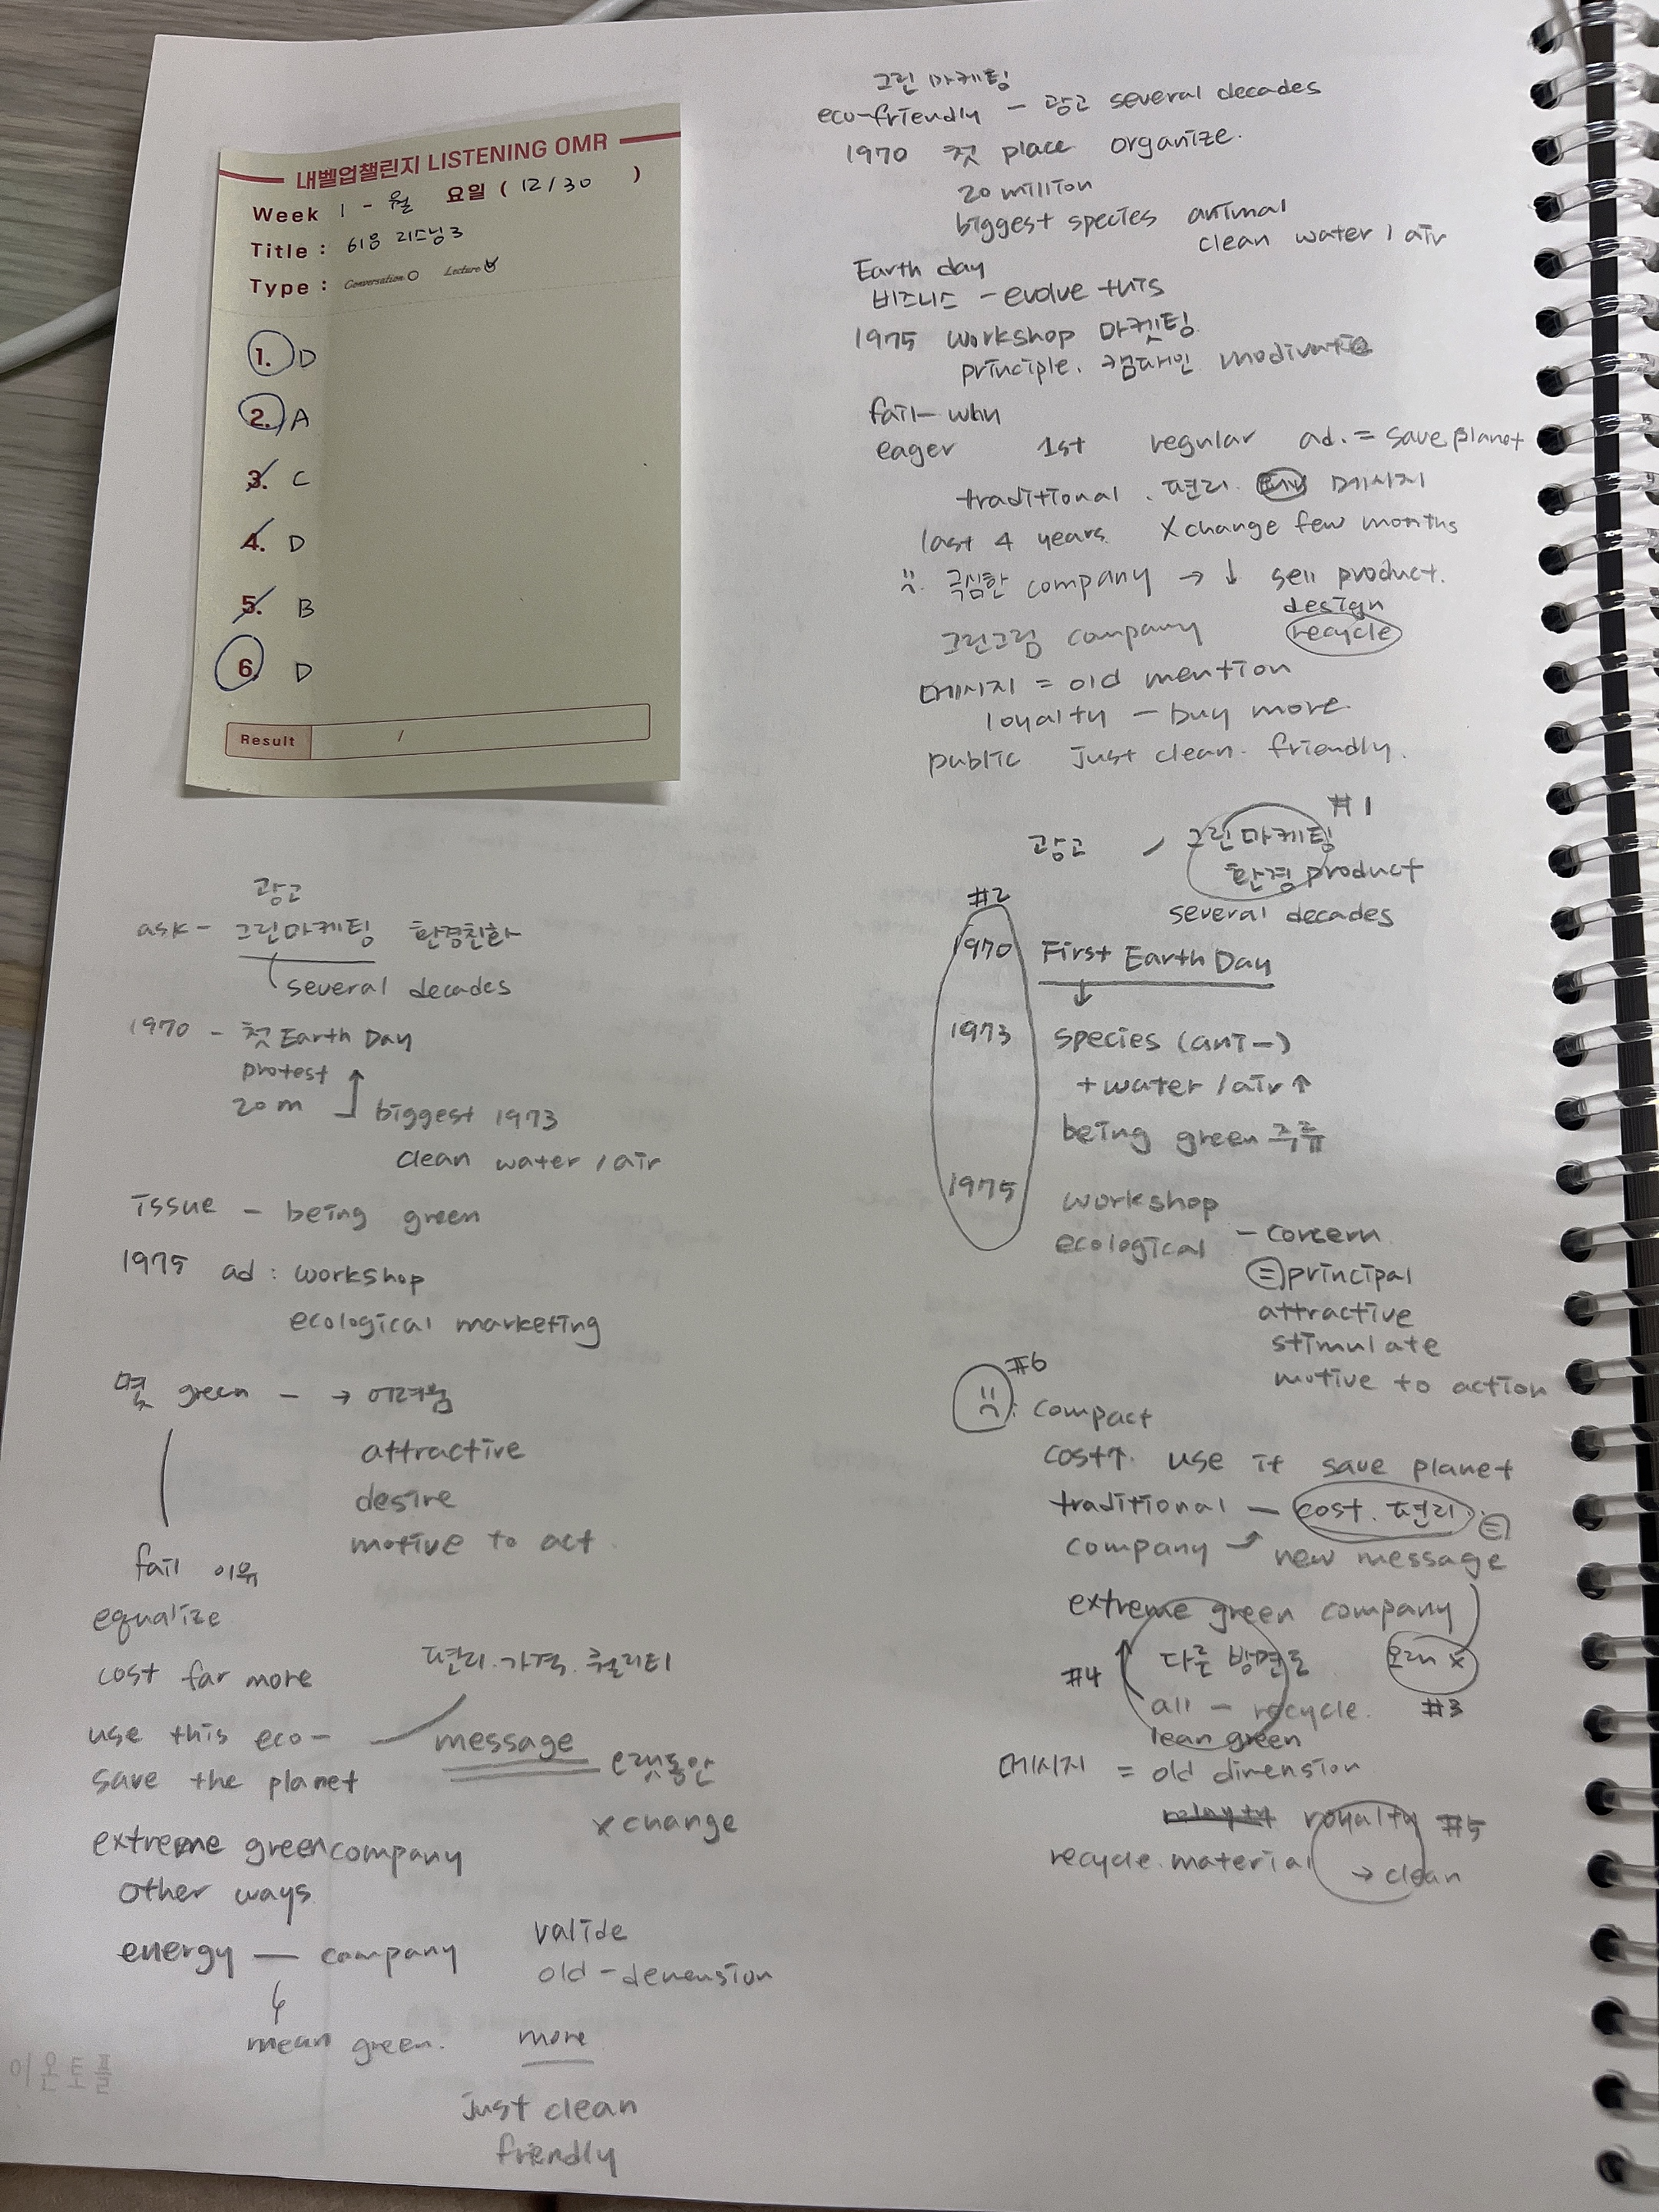 내벨업챌린지 LISTENING OMR
Week 1 - 월 요일 ( 12/30 )
Title : 61응 리스닝3
Type : Conversation Lecture
1. D
2. A
3. C
4. D
5. B
6. D
Result /
그린 마케팅
eco-friendly - 광고 several decades
1970 첫 place organize.
20 million
biggest species animal
clean water / air
Earth day
비즈니스 - evolve this
1975 workshop 마켓팅
principle. 캠패인
fail - why
eager 1st regular ad. = save planet
traditional. 편리. 메시지
last 4 years X change few months
극심한 company → ↓ sell product.
design
그린그림 company recycle
메시지 = old mention
loyalty - buy more.
public just clean. friendly.
#1
광고 그린마케팅
환경 product
several decades
#2
1970 First Earth Day
↓
1973 species (ani-)
+ water / air ↑
being green 주류
1975 workshop
ecological - concern
= principal
attractive
stimulate
motive to action
#6
: compact
cost↑. use it save planet
traditional - cost. 편리. =
company → new message
extreme green company
#4 다른 방면도 오래 x
all - recycle. #3
lean green
메시지 = old dimension
royalty #5
recycle. material → clean
광고
ask - 그린마케팅 환경친화
several decades
1970 - 첫 Earth Day
protest
20m biggest 1973
clean water / air
issue - being green
1975 ad : workshop
ecological marketing
몇 green - → 어려움
attractive
desire
motive to act.
fail 이유
equalize
cost far more 편리. 가격. 퀄리티
use this eco- message
save the planet 오랫동안
x change
extreme green company
other ways
energy - company valide
old - demension
mean green. more
just clean
friendly
이온토플